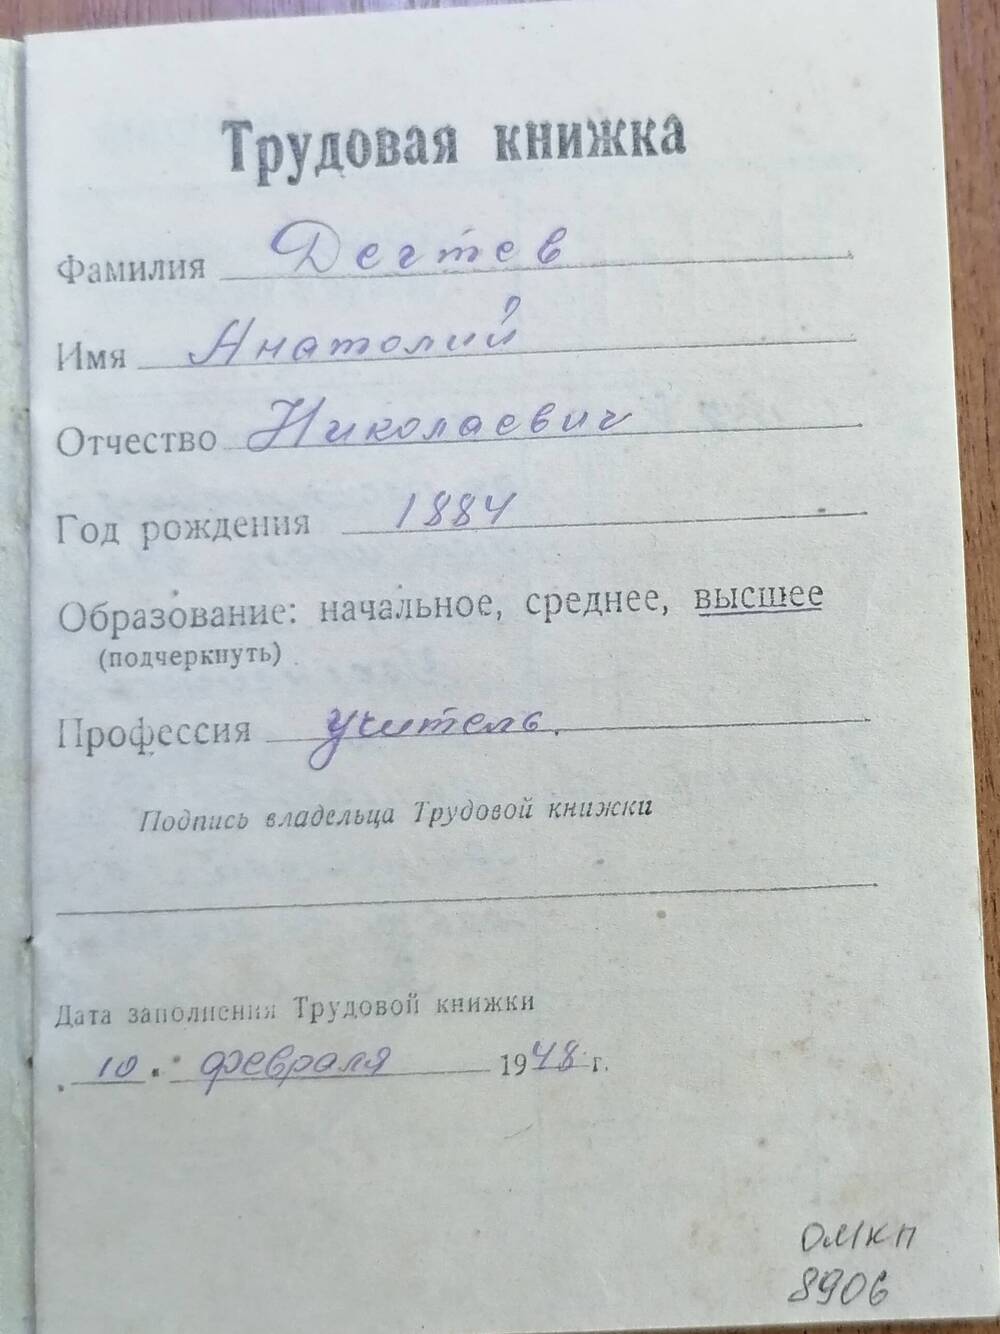 Трудовая книжка
Фамилия Дегтев
Имя Анатолий
Отчество Николаевич
Год рождения 1884
Образование: начальное, среднее, высшее
(подчеркнуть)
Профессия учитель.
Подпись владельца Трудовой книжки
Дата заполнения Трудовой книжки
„10“ февраля 1948 г.
ОМКП
8906